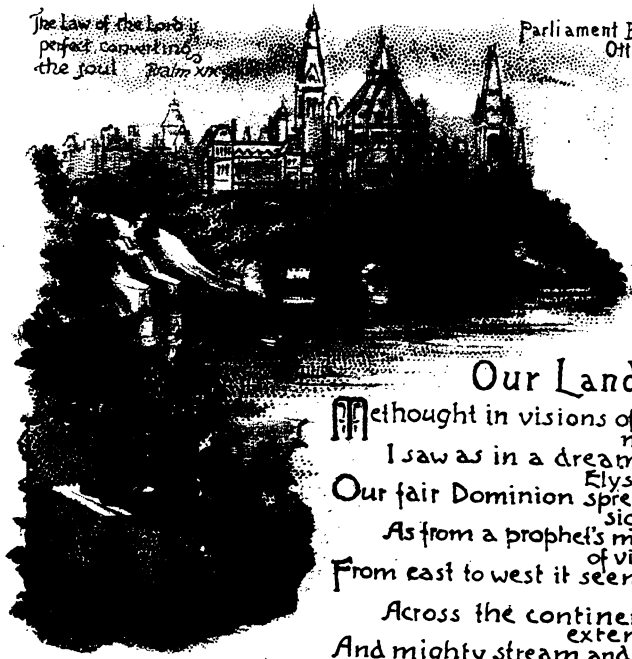 The Law of the Lord is
perfect converting
the soul Psalm XIX
Parliament B
Ott
Our Land
Methought in visions of
n
I saw as in a dream
Elys
Our fair Dominion spre
sig
As from a prophet's m
of vi
From east to west it seem
Across the continen
exten
And mighty stream and